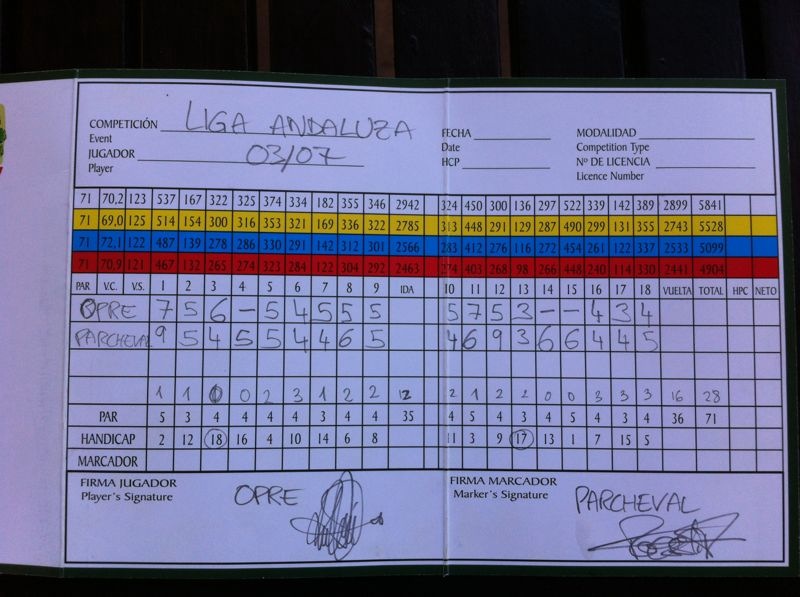 COMPETICIÓN LIGA ANDALUZA
Event
JUGADOR 03/07
Player
FECHA
Date
HCP
MODALIDAD
Competition Type
Nº DE LICENCIA
Licence Number
71 70,2 123 537 167 322 325 374 334 182 355 346 2942 324 450 300 136 297 522 339 142 389 2899 5841
71 69,0 125 514 154 300 316 353 321 169 336 322 2785 313 448 291 129 287 490 299 131 355 2743 5528
71 72,1 122 487 139 278 286 330 291 142 312 301 2566 283 412 276 116 272 454 261 122 337 2533 5099
71 70,9 121 467 132 265 274 323 284 122 304 292 2463 274 403 268 98 266 448 240 114 330 2441 4904
PAR V.C. V.S. 1 2 3 4 5 6 7 8 9 IDA 10 11 12 13 14 15 16 17 18 VUELTA TOTAL HPC NETO
OPRE 7 5 6 – 5 4 5 5 5 5 7 5 3 – – 4 3 4
PARCHEVAL 9 5 4 5 5 4 4 6 5 4 6 9 3 6 6 4 4 5
1 1 0 0 2 3 1 2 2 12 2 1 2 2 0 0 3 3 3 16 28
PAR 5 3 4 4 4 4 3 4 4 35 4 5 4 3 4 5 4 3 4 36 71
HANDICAP 2 12 18 16 4 10 14 6 8 11 3 9 17 13 1 7 15 5
MARCADOR
FIRMA JUGADOR
Player's Signature
OPRE
FIRMA MARCADOR
Marker's Signature
PARCHEVAL